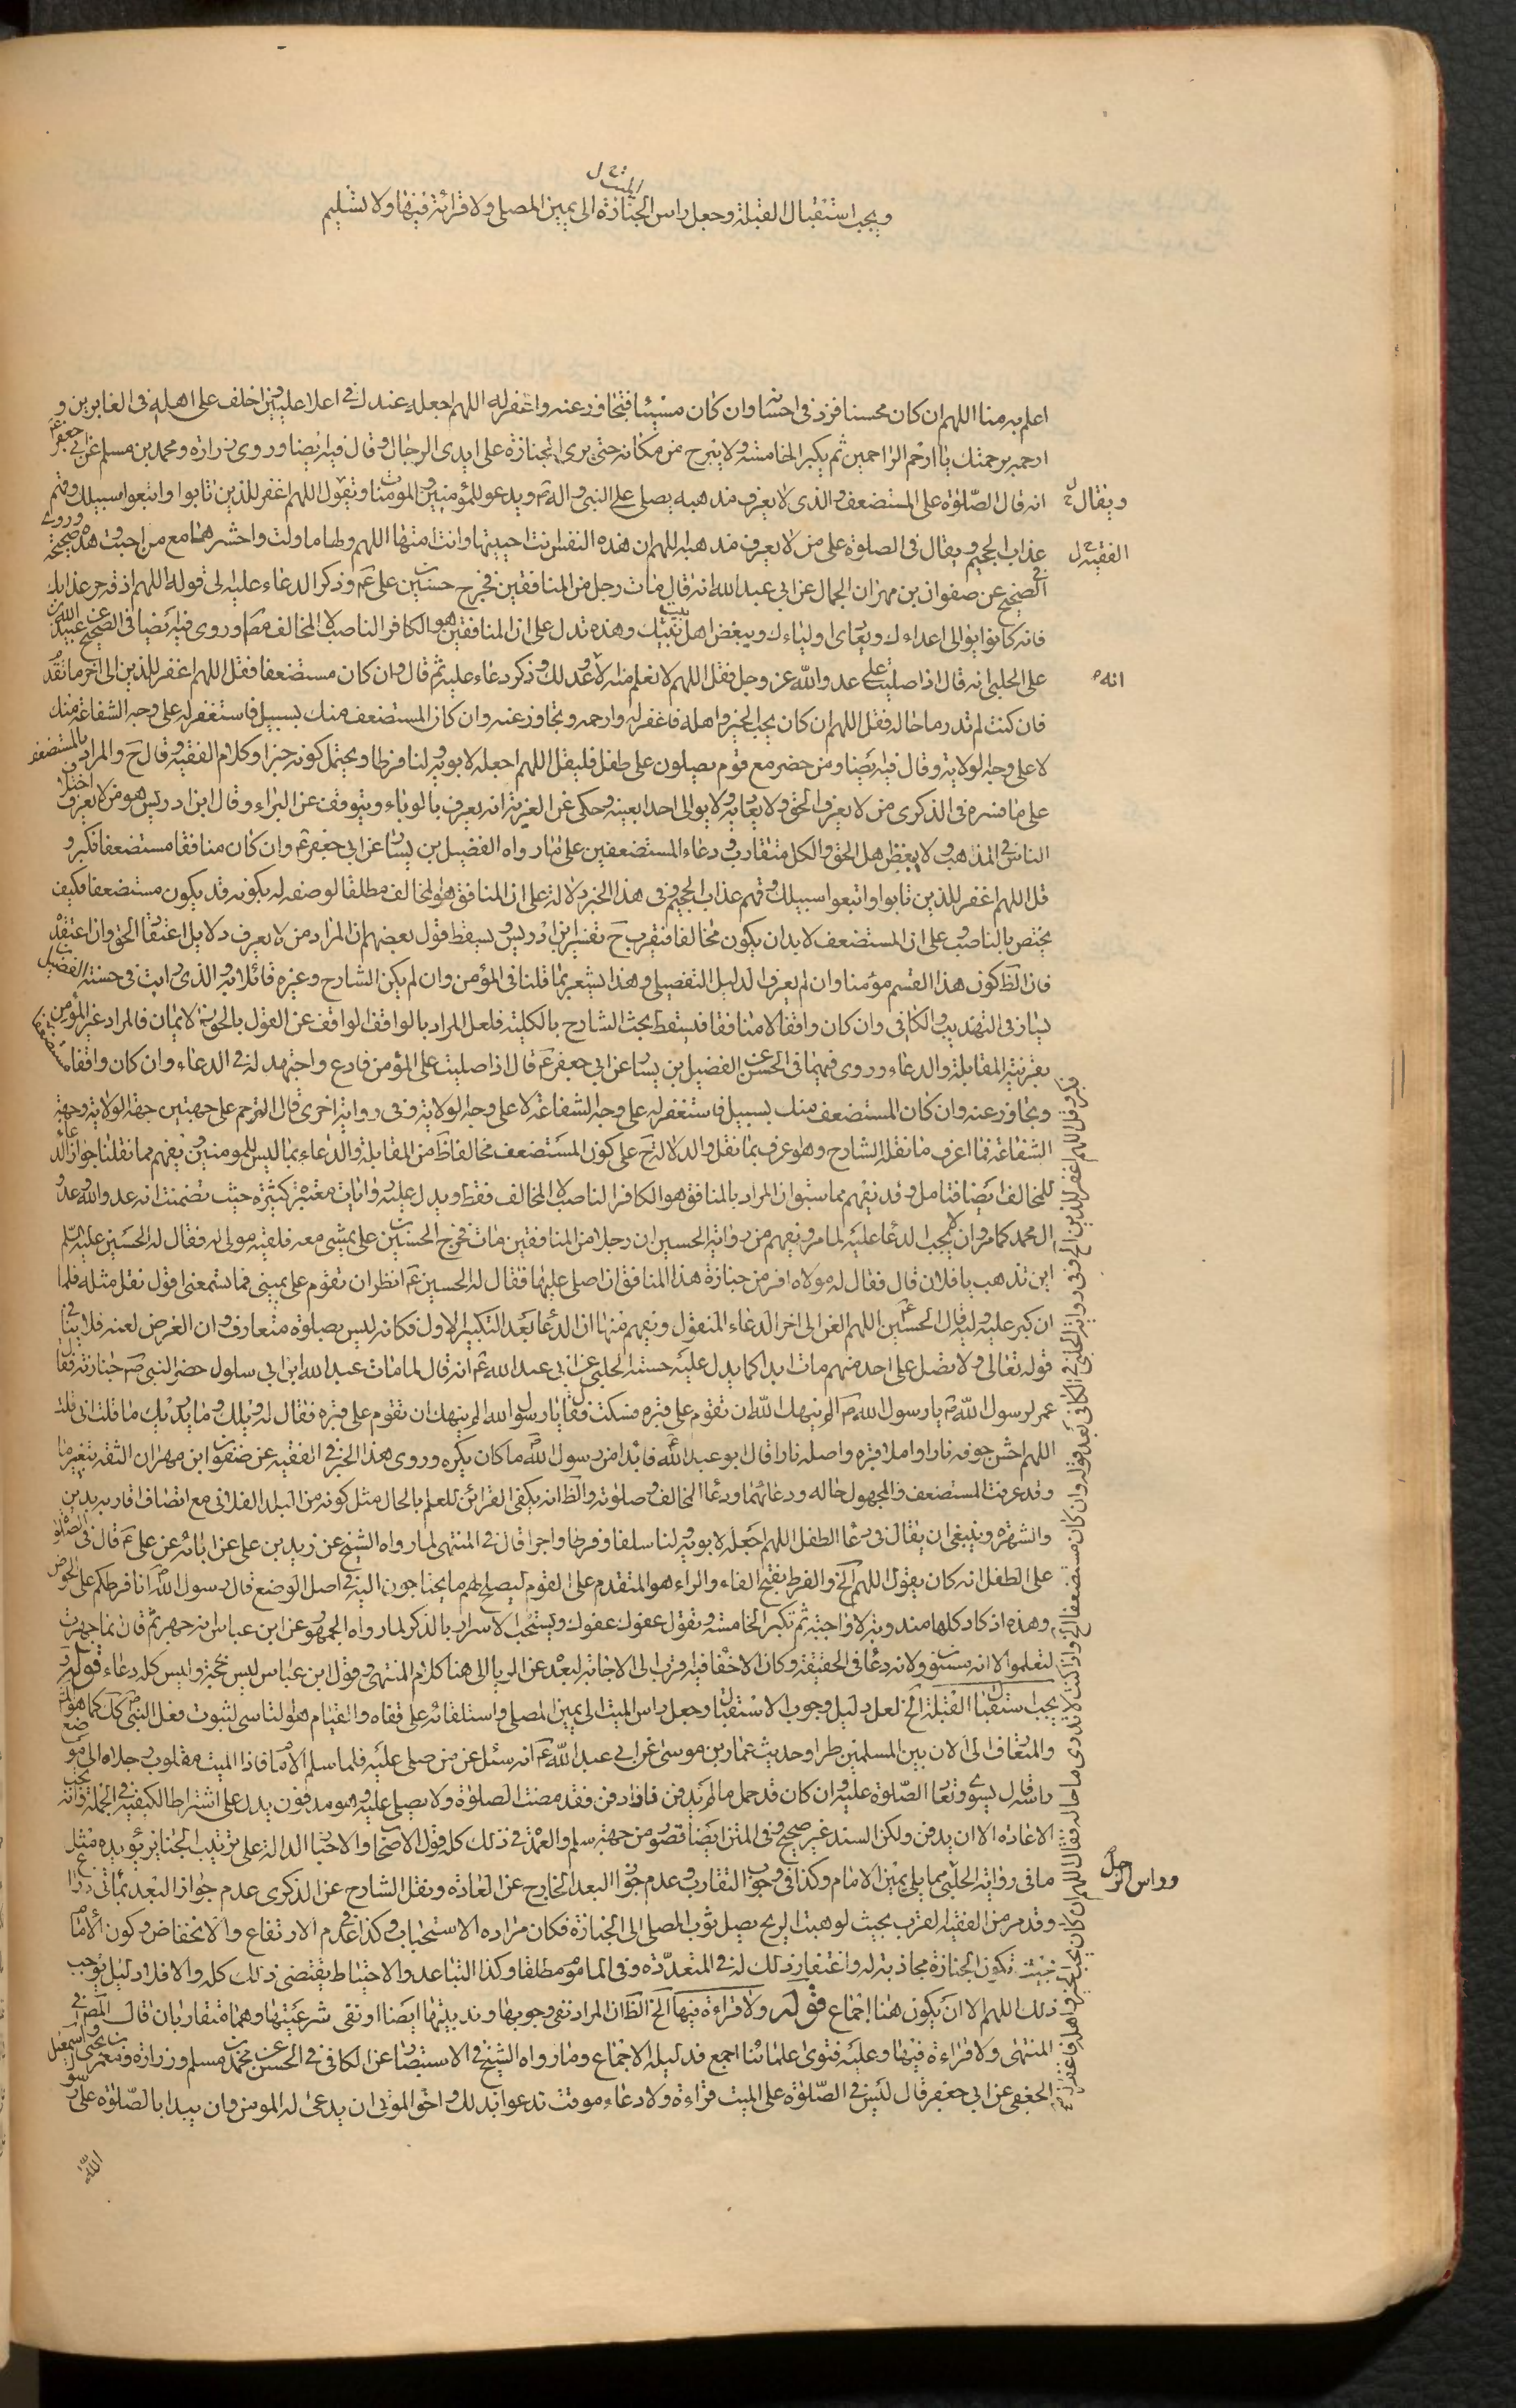 ويجب استقبال القبلة وجعل راس الجنازة الى يمين المصلى ولا قرائة فيها ولا تسليم
الميت خ ل
اعلم به منا اللهم ان كان محسنا فزد فى احسانه وان كان مسيئا فتجاوز عنه واغفر له اللهم اجعله عندك فى اعلا عليين واخلف على اهله فى الغابرين و
ارحمه برحمتك يا ارحم الراحمين ثم يكبر الخامسة ولا يبرح من مكانه حتى يرى الجنازة على ايدى الرجال وقال فيه ايضا وروى زرارة ومحمد بن مسلم عن ابى جعفر ع
انه قال الصلوة على المستضعف والذى لا يعرف مذهبه يصلى على النبى واله ص ويدعو للمؤمنين والمؤمنات ويقول اللهم اغفر للذين تابوا واتبعوا سبيلك وقهم
ويقال خ
عذاب الجحيم ويقال فى الصلوة على من لا يعرف مذهبه اللهم ان هذه النفس انت احييتها وانت امتها اللهم ولها ما تولت واحشرها مع من احبت وهذه صحيحة وروى
الفقيه خ ل
فى الصحيح عن صفوان بن مهران الجمال عن ابى عبد الله انه قال مات رجل من المنافقين فخرج حسين بن على ع وذكر الدعاء عليه الى قوله اللهم اذقه حر عذابك
فانه كان يوالى اعدائك ويعادى اولياءك ويبغض اهل بيت نبيك وهذه تدل على ان المنافقين هو الكافر الناصب لا المخالف مط وروى فيه ايضا فى الصحيح عن عبيد الله بن
على الحلبى انه قال اذا صليت على عدو الله عز وجل فقل اللهم لا نعلم منه الا انه عدو لك وذكر دعاء عليه ثم قال وان كان مستضعفا فقل اللهم اغفر للذين الى اخر ما تقدم
انه
فان كنت لم تدر ما حاله فقل اللهم ان كان يحب الخير واهله فاغفر له وارحمه وتجاوز عنه وان كان المستضعف منك بسبيل فاستغفر له على وجه الشفاعة منك
لا على وجه الولاية وقال فيه ايضا ومن حضر مع قوم يصلون على طفل فليقل اللهم اجعله لابويه ولنا فرطا ويحتمل كونه خبرا وكلام الفقيه وقال ح والمراد بالمستضعف
على ما فسره فى الذكرى من لا يعرف الحق ولا يعاند فيه ولا يوالى احدا بعينه وحكى عن الغرية انه يعرف بالولاء ويتوقف عن البراء وقال ابن ادريس هو من لا يعرف اختلاف
الناس فى المذهب ولا يبغض اهل الحق والكل متقارب ودعاء المستضعفين على ما رواه الفضيل بن يسار عن ابى جعفر ع وان كان منافقا مستضعفا فكبر و
قل اللهم اغفر للذين تابوا واتبعوا سبيلك وقهم عذاب الجحيم وفى هذا الخبر دلالة على ان المنافق هو المخالف مطلقا لوصفه له بكونه قد يكون مستضعفا فكيف
يختص بالناصب وعلى ان المستضعف لا بد ان يكون مخالفا فيقرب ح تفسير ابن ادريس ويسقط قول بعضهم ان المراد من لا يعرف دلايل اعتقاد الحق وان اعتقده
فان الظ كون هذا القسم مؤمنا وان لم يعرف الدليل التفصيلى وهذا يشعر بما قلنا فى المؤمن وان لم يكن الشارح وغيره قائلا به والذى رايت فى حسنة الفضيل بن
يسار فى التهذيب والكافى وان كان واقفا لا منافقا فيسقط بحث الشارح بالكلية فلعل المراد بالواقف الواقف عن القول بالحق بل الايمان فالمراد غير المؤمن
بقرينة المقابلة والدعاء وروى فيهما فى الحسن عن الفضيل بن يسار عن ابى جعفر ع قال اذا صليت على المؤمن فادع واجتهد له فى الدعاء وان كان واقفا مستضعفا
وتجاوز عنه وان كان المستضعف منك بسبيل فاستغفر له على وجه الشفاعة لا على وجه الولاية وفى رواية اخرى قال الترحم على جهتين جهة الولاية وجهة
الشفاعة فما اعرف ما نقله الشارح وهو عرف بما نقل والدلالة ح على كون المستضعف مخالفا ظ من المقابلة والدعاء بما ليس للمومنين ويفهم مما نقلنا جواز الدعاء
للمخالف ايضا فتامل وقد يفهم مما سبق ان المراد بالمنافق هو الكافر الناصب لا المخالف فقط ويدل عليه روايات معتبرة كثيرة حيث تضمنت انه عدو الله وعدو
ال محمد كما مر وان لا يجب الدعا عليه لما مر ويفهم من رواية الحسين ان رجلا من المنافقين مات فخرج الحسين بن على يمشى معه فلقيه مولى له فقال له الحسين عليه السلم
اين تذهب يا فلان قال فقال له مولاه افر من جنازة هذا المنافق ان اصلى عليها فقال له الحسين ع انظر ان تقوم على يمينى فما تسمعنى اقول فقل مثله فلما
ان كبر عليه وليه قال الحسين ع اللهم العن الى اخر الدعاء المنقول ويفهم منها ان الدعا بعد التكبير الاول فكانه ليس بصلوة متعارف وان الغرض لعنه فلا ينافى
قوله تعالى ولا تصل على احد منهم مات ابدا كما يدل عليه حسنة الحلبى عن ابى عبد الله ع انه قال لما مات عبد الله ابن ابى سلول حضر النبى ص جنازته فقال
عمر لرسول الله ص يا رسول الله ص الم ينهك الله ان تقوم على قبره فسكت فقال يا رسول الله الم ينهك ان تقوم على قبره فقال له ويلك وما يدريك ما قلت انى قلت
اللهم احش جوفه نارا واملا قبره واصله نارا قال ابو عبد الله ع فابدا من رسول الله ص ما كان يكره وروى هذا الخبر فى الفقيه عن صفوان ابن مهران الثقة بتغير ما
وقد عرفت المستضعف والمجهول حاله ودعائهما ودعا المخالف وصلوته والظ انه يكفى القرائن للعلم بالحال مثل كونه من البلد الفلانى مع اتصاف اقاربه بدين
والشهرة وينبغى ان يقال فى دعا الطفل اللهم اجعله لابويه ولنا سلفا وفرطا واجرا قال فى المنتهى لما رواه الشيخ عن زيد بن على عن ابائه عن على ع قال فى الصلوة
على الطفل انه كان يقول اللهم الخ والفرط بفتح الفاء والراء هو المتقدم على القوم ليصلح لهم ما يحتاجون اليه فى اصل الوضع قال رسول الله ص انا فرطكم على الحوض
وهذه اذكار كلها مندوبة لا واجبة ثم تكبر الخامسة وتقول عفوك عفوك ويستحب الاسرار بالذكر لما رواه الجمهور عن ابن عباس انه جهر ثم قال انما جهرت
لتعلموا الا انه مسنون ولانه دعا فى الحقيقة وكان الاخفا فيه اقرب الى الاجابة لبعده عن الريا الى هنا كلام المنتهى وقول ابن عباس ليس بحجة وليس كله دعاء قوله
ويجب استقبال القبلة الخ لعل دليل وجوب الاستقبال وجعل راس الميت الى يمين المصلى واستلقائه على قفاه والقيام هو التاسى لثبوت فعل النبى ص كك كما هو
والمتعارف الى الان بين المسلمين طرا وحديث عمار بن موسى عن ابى عبد الله ع انه سئل عمن صلى عليه فلما سلم الامام فاذا الميت مقلوب رجلاه الى موضع
راسه قال يسوى وتعاد الصلوة عليه وان كان قد حمل ما لم يدفن فان دفن فقد مضت الصلوة ولا يصلى عليه وهو مدفون يدل على اشتراط الكيفية فى الجملة فانه يجب
الاعادة الا ان يدفن ولكن السند غير صحيح وفى المتن ايضا قصور من جهة سلم والعمدة فى ذلك كله قول الاصحاب والاخبار الدالة على ترتيب الجنايز يؤيده مثل
ما فى رواية الحلبى مما يلى يمين الامام وكذا فى وجوب التقارب وعدم جواز البعد الخارج عن العادة ونقل الشارح عن الذكرى عدم جواز البعد بمائتى ذراع
وراس الرجل
وقد مر من الفقيه القرب بحيث لو هبت الريح يصل ثوب المصلى الى الجنازة فكان مراده الاستحباب وكذا عدم الارتفاع والانخفاض وكون الامام
بحيث تكون الجنازة محاذية له واغتفار ذلك له فى المتعددة وفى الماموم مطلقا وكذا التباعد والاحتياط يقتضى ذلك كله والا فلا دليل يوجب
ذلك اللهم الا ان يكون هنا اجماع قوله ولا قراءة فيها الخ الظ ان المراد نفى وجوبها وندبيتها ايضا او نفى شرعيتها وهما متقاربان قال المص فى
المنتهى ولا قراءة فيها وعليه فتوى علمائنا اجمع فدليله الاجماع وما رواه الشيخ فى الاستبصار عن الكافى فى الحسن عن محمد بن مسلم وزرارة ومعمر بن يحيى واسمعيل
الجعفى عن ابى جعفر قال ليس فى الصلوة على الميت قراءة ولا دعاء موقت تدعو بما بدا لك واحق الموتى ان يدعى له المومن وان يبدا بالصلوة على رسول
الله
فكبر وقل اللهم اغفر للذين الخ وفى رواية الحلبى فى الكافى بعد قوله وان كان مستضعفا الخ واذا كنت لا تدرى ما حاله فقل اللهم ان كان يحب الخير واهله فاغفر له